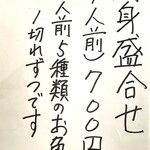 身盛合せ
人前)700円
人前5種類のお魚
1切れずつです